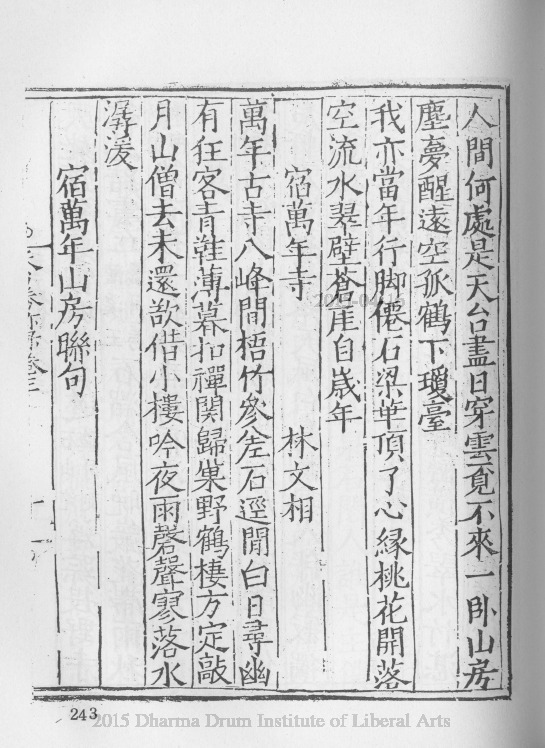 人間何處是天台盡日穿雲覓不來一卧山房
塵夢醒遠空孤鶴下瓊臺
我亦當年行脚僊石梁華頂了心緣桃花開落
空流水翠壁蒼崖自歲年
宿萬年寺 林文相
萬年古寺八峰間梧竹參差石逕閒白日尋幽
有狂客青鞋薄暮扣禪関歸巢野鶴棲方定敲
月山僧去未還欲借小樓吟夜雨磬聲寥落水
潺湲
宿萬年山房聯句
243
2015 Dharma Drum Institute of Liberal Arts